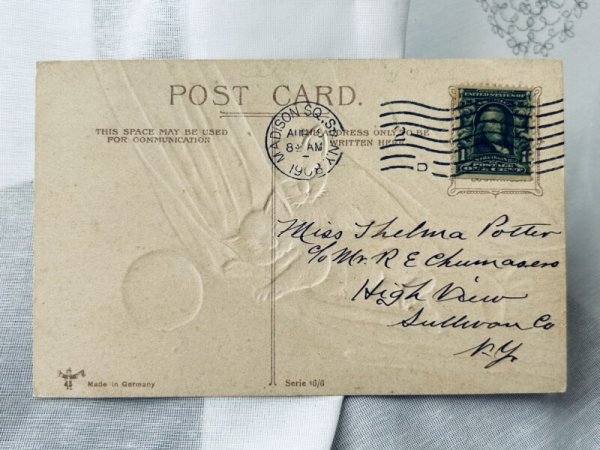 POST CARD.
THIS SPACE MAY BE USED
FOR COMMUNICATION
THE ADDRESS ONLY TO BE
WRITTEN HERE
MADISON SQ. STA. N.Y.
8 AM
1908
D
UNITED STATES OF
1 1
POSTAGE
ONE CENT
Miss Thelma Potter
c/o Mr. R E Chumasero
High View
Sullivan Co
N.Y.
Made in Germany
Serie